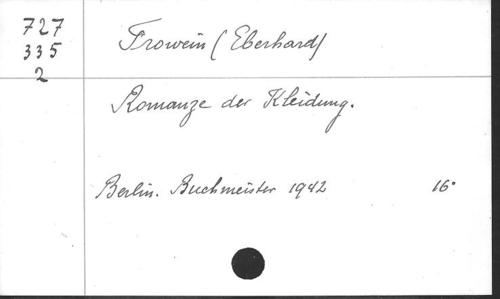 727
335
2
Frowein (Eberhard)
Romanze der Kleidung.
Berlin. Buchmeister 1942 16°